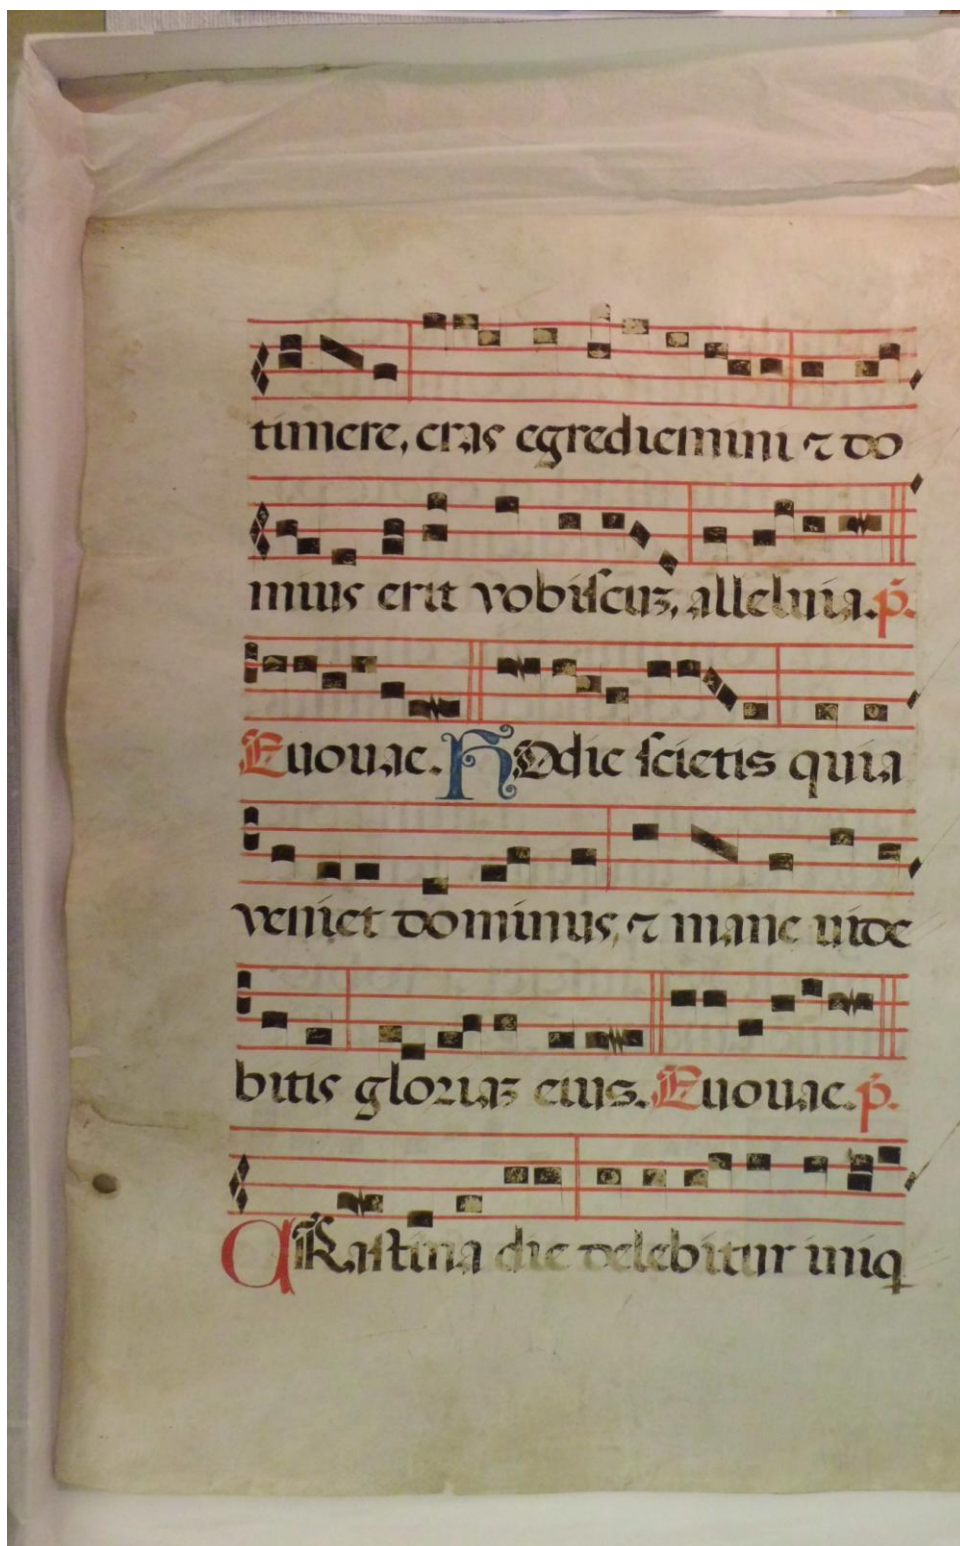 timere, cras egrediemini ⁊ do
minus erit vobiscuꝫ, alleluia. p̃.
Euouae. HOdie scietis quia
veniet dominus, ⁊ mane uide
bitis gloriaꝫ eius. Euouae. p̃.
CRastina die delebitur iniq